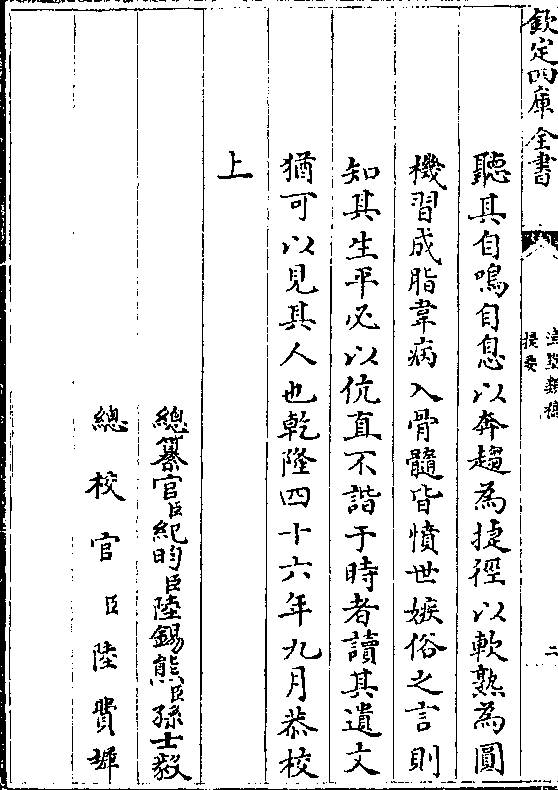 欽定四庫全書
提要
二
聽其自鳴自息以奔趨為捷徑以軟熟為圓
機習成脂韋病入骨髓皆憤世嫉俗之言則
知其生平必以伉直不諧于時者讀其遺文
猶可以見其人也乾隆四十六年九月恭校
上
總纂官臣紀昀臣陸錫熊臣孫士毅
總校官臣陸費墀